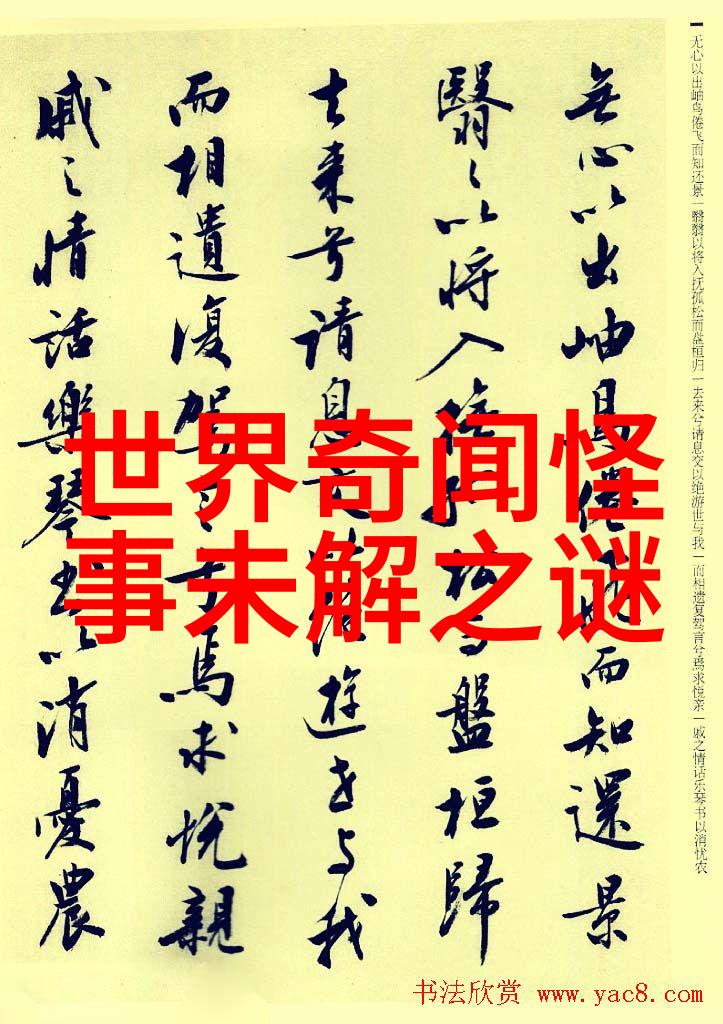 无心以出岫鸟倦飞而知还景一翳翳以将入抚孤松而盘桓归一去来兮请息交以绝游世与我一而相遗复驾言兮焉求悦亲一戚之情话乐琴书以消忧农
無心以出岫鳥倦飛而知還景
翳々以将入撫孤松而盤桓歸
去来兮请息交以绝遊世与我
而相遺復驾言兮焉求悦親
戚之情話樂琴书以消憂農
世界奇闻怪
事未解之谜
书法欣赏 www.yac8.com